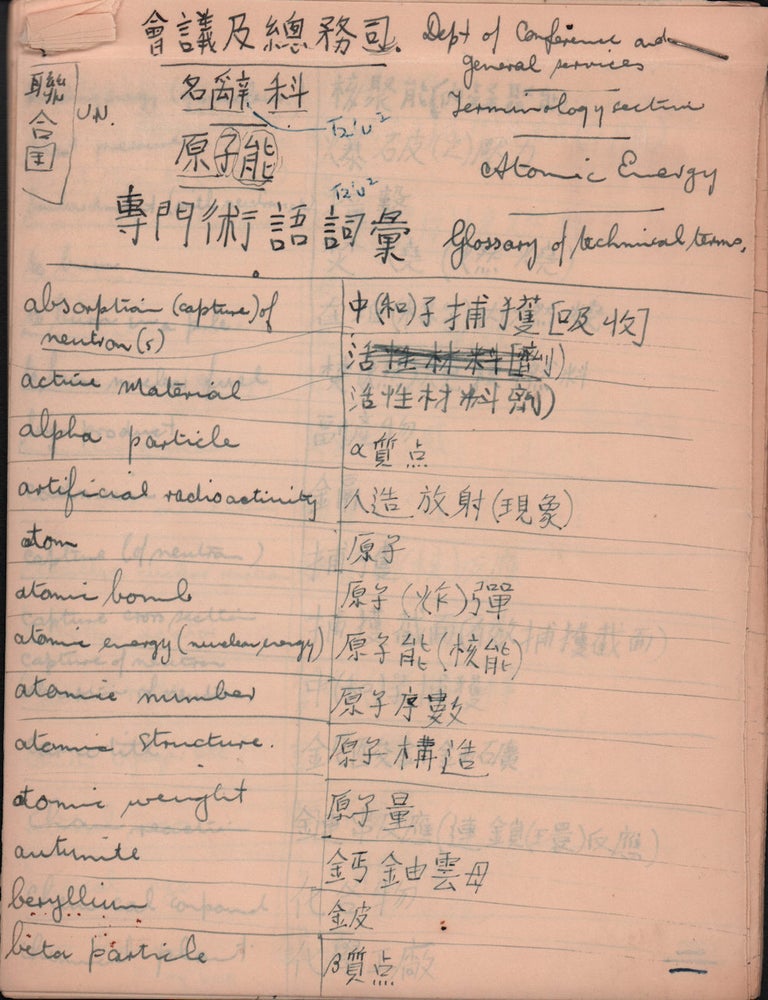 會議及總務司. Dept of Conference and
general services
聯合国 U.N.
名辭科 Terminology section
原子能 Atomic Energy
專門術語詞彙 Glossary of technical terms.
absorption (capture) of 中(和)子捕獲[吸收]
neutron(s)
活性材料[劑)
active material 活性材料劑)
alpha particle α質点
artificial radioactivity 人造放射(現象)
atom 原子
atomic bomb 原子(炸)彈
atomic energy (nuclear energy) 原子能(核能)
atomic number 原子序數
atomic structure. 原子構造
atomic weight 原子量
autunite 鈣鈾雲母
beryllium 鈹
beta particle β質点